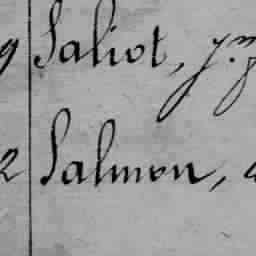 9 Saliot, J. M
2 Salmon,